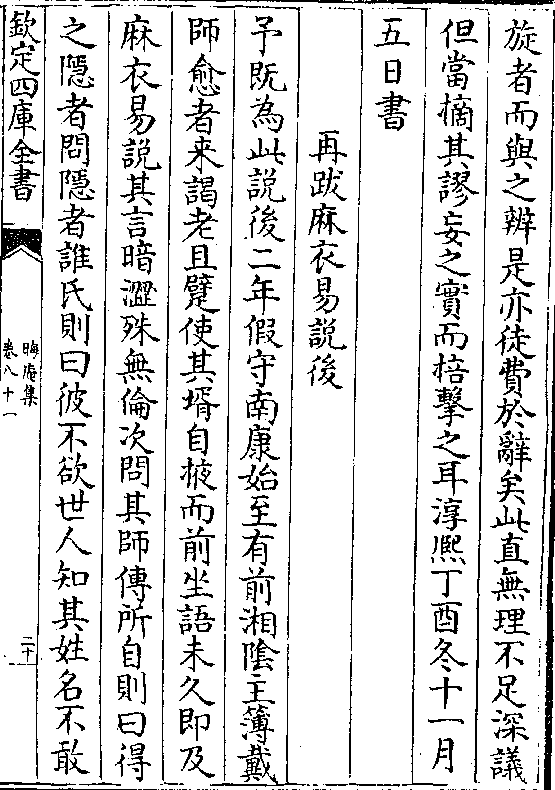 旋者而與之辨是亦徒費於辭矣此直無理不足深議
但當摘其謬妄之實而掊擊之耳淳熙丁酉冬十一月
五日書
再跋麻衣易説後
予既為此説後二年假守南康始至有前湘隂主簿戴
師愈者来謁老且躄使其壻自掖而前坐語未久即及
麻衣易説其言暗澀殊無倫次問其師傳所自則曰得
之隠者問隠者誰氏則曰彼不欲世人知其姓名不敢
欽定四庫全書
晦庵集
卷八十一
二十